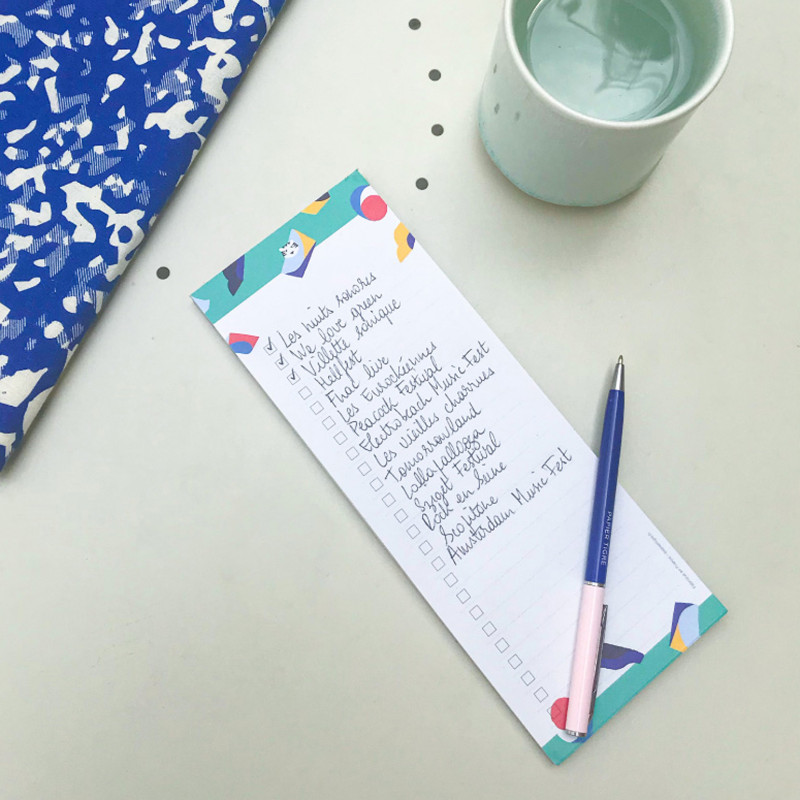 Les nuits sonores
We love green
Villette sonique
Hellfest
Fnac live
Les Eurockéennes
Peacock Festival
Electrobeach Music Fest
Les vieilles charrues
Tomorrowland
Lollapalooza
Sziget Festival
Rock en Seine
Scopitone
Amsterdam Music Fest
PAPIER TIGRE